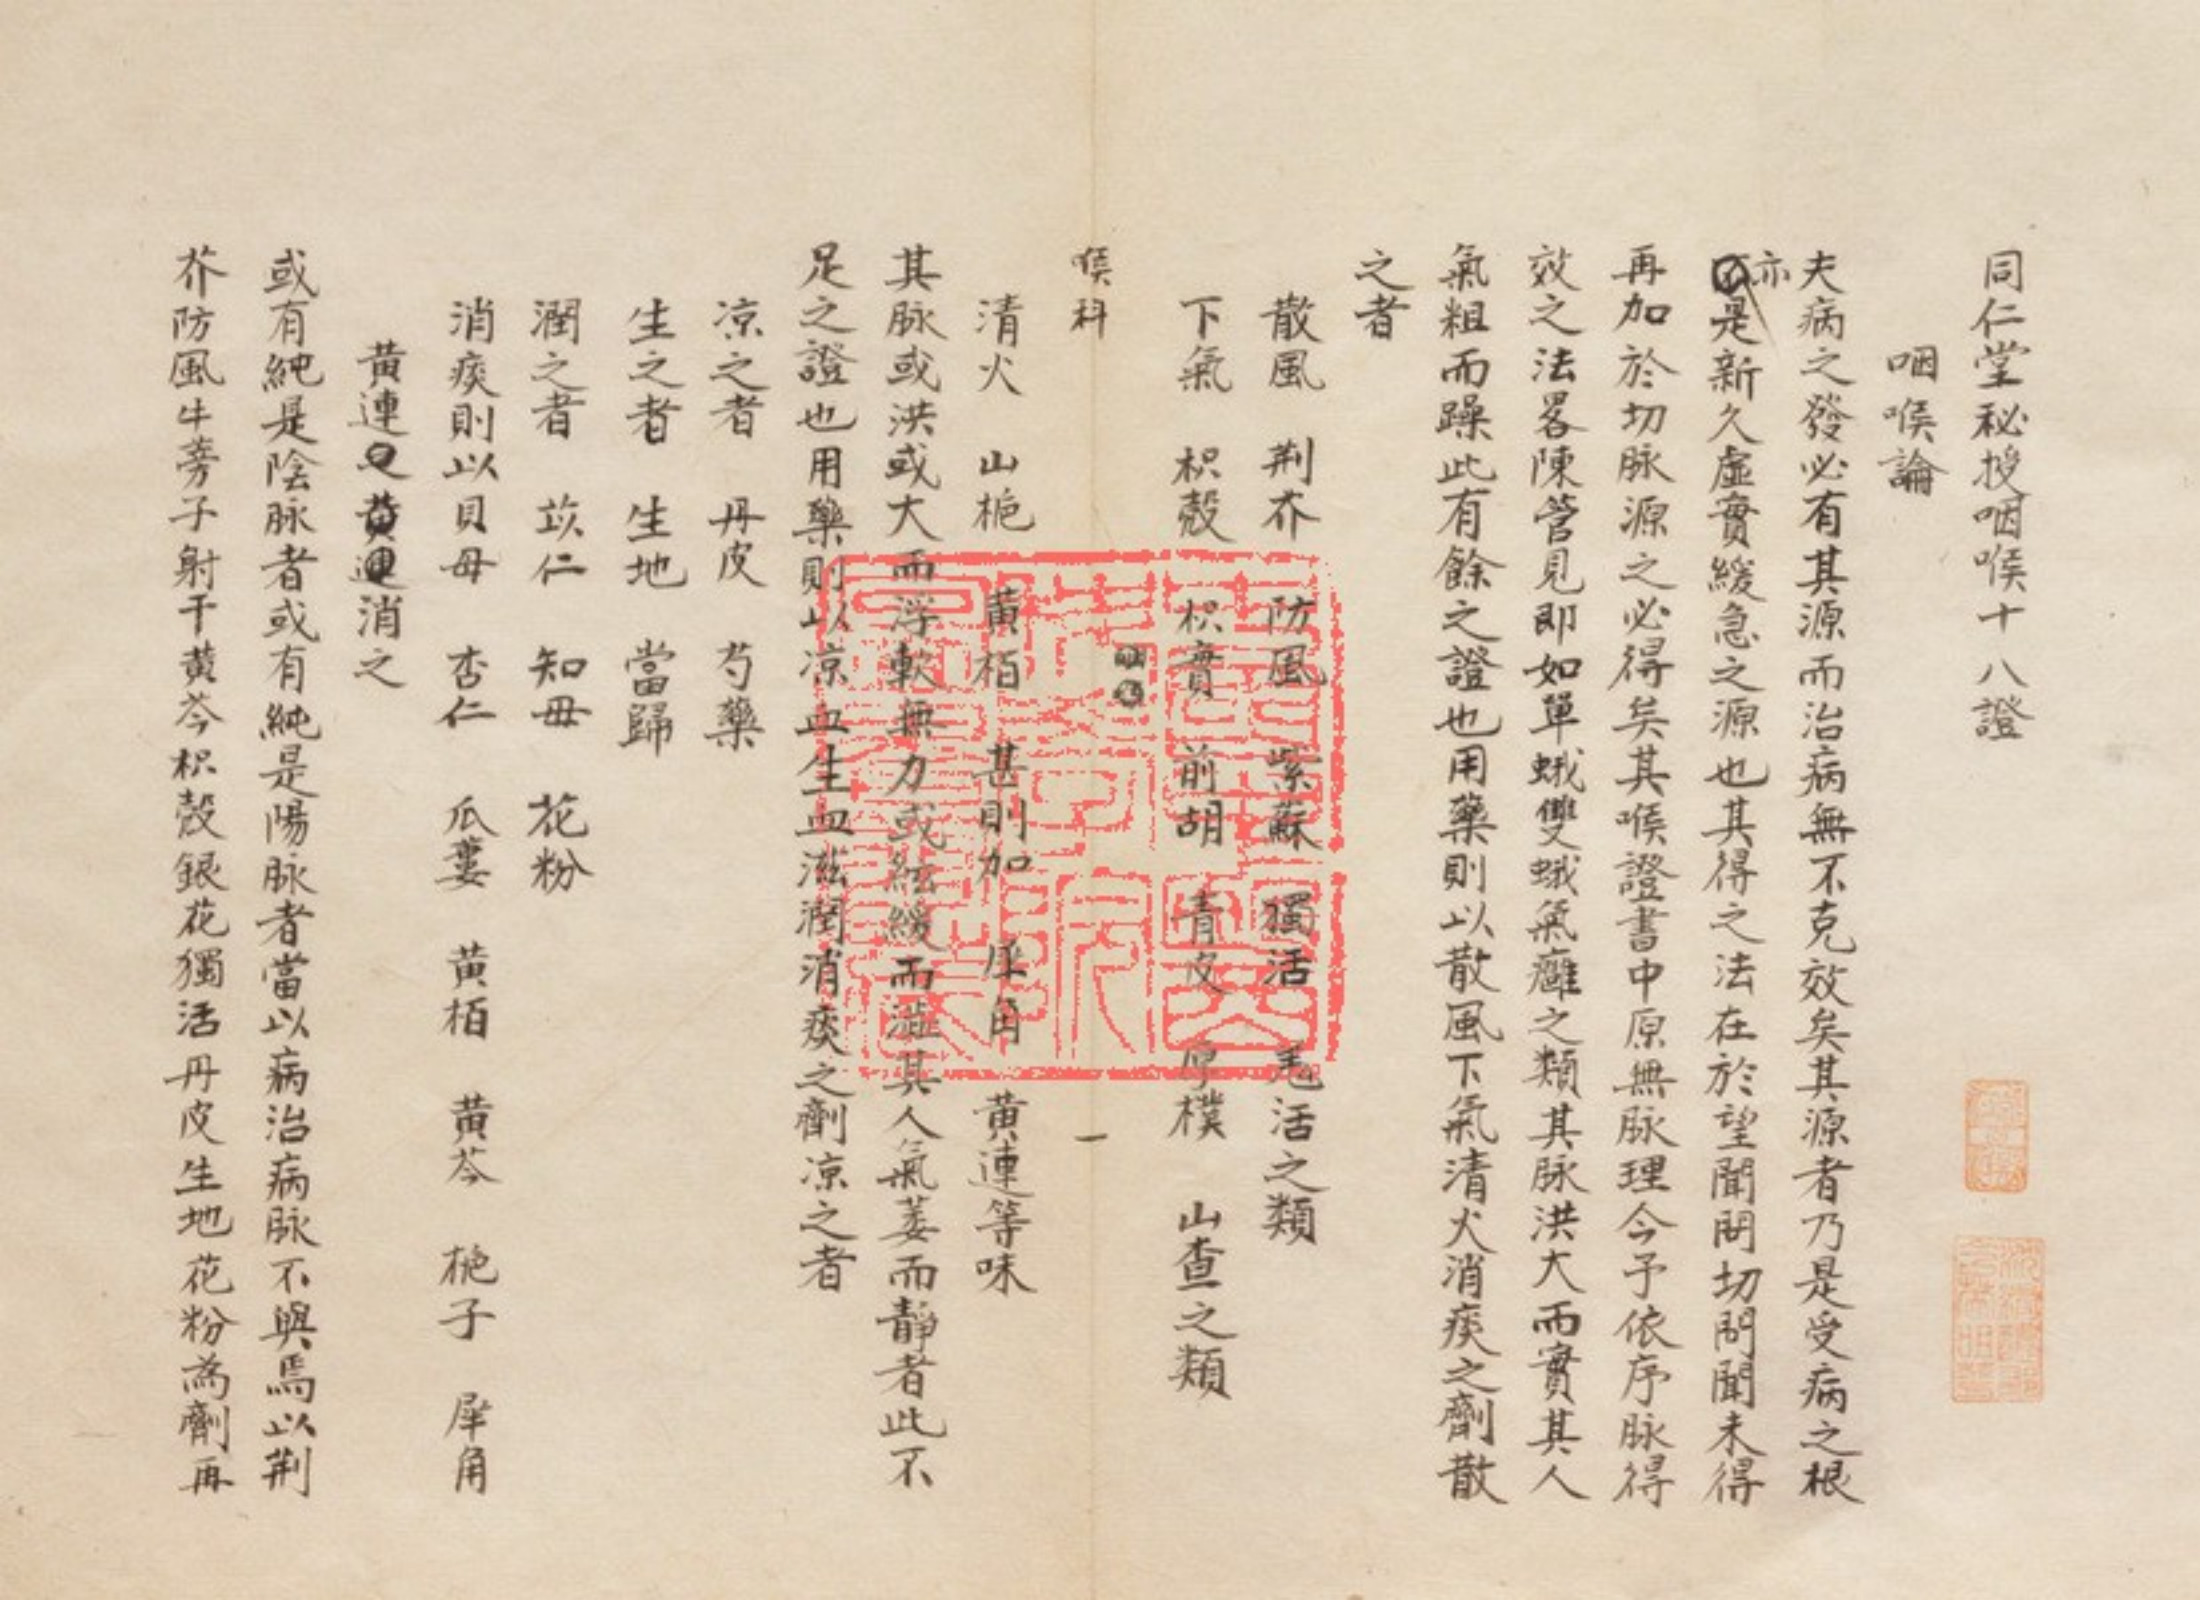 同仁堂秘授咽喉十八證
咽喉論
夫病之發必有其源而治病無不克效矣其源者乃是受病之根
亦是新久虛實緩急之源也其得之法在於望聞問切問聞未得
再加於切脉源之必得矣其喉證書中原無脉理今予依序脉得
效之法畧陳管見即如單蛾雙蛾氣癰之類其脉洪大而實其人
氣粗而躁此有餘之證也用藥則以散風下氣清火消痰之劑散
之者
散風 荆芥 防風 紫蘇 獨活 羗活之類
下氣 枳殼 枳實 前胡 青皮 厚樸 山查之類
喉科 一
清火 山梔 黃栢 甚則加 犀角 黃連等味
其脉或洪或大而浮軟無力或絃緩而濇其人氣萎而靜者此不
足之證也用藥則以凉血生血滋潤消痰之劑凉之者
凉之者 丹皮 芍藥
生之者 生地 當歸
潤之者 苡仁 知毋 花粉
消痰則以貝母 杏仁 瓜蔞 黃栢 黃芩 梔子 犀角
黃連消之
或有純是陰脉者或有純是陽脉者當以病治病脉不與焉以荆
芥防風牛蒡子射干黃芩枳殼銀花獨活丹皮生地花粉為劑再